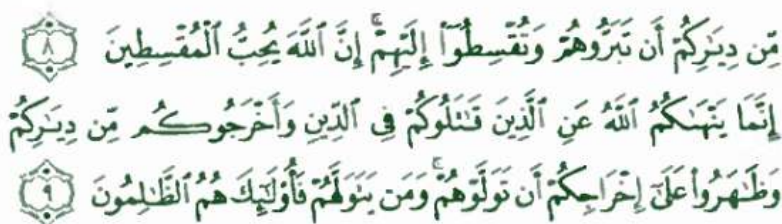 مِّن دِيَـٰرِكُمْ أَن تَبَرُّوهُمْ وَتُقْسِطُوٓا۟ إِلَيْهِمْ ۚ إِنَّ ٱللَّهَ يُحِبُّ ٱلْمُقْسِطِينَ ٨
إِنَّمَا يَنْهَىٰكُمُ ٱللَّهُ عَنِ ٱلَّذِينَ قَـٰتَلُوكُمْ فِى ٱلدِّينِ وَأَخْرَجُوكُم مِّن دِيَـٰرِكُمْ
وَظَـٰهَرُوا۟ عَلَىٰٓ إِخْرَاجِكُمْ أَن تَوَلَّوْهُمْ ۚ وَمَن يَتَوَلَّهُمْ فَأُو۟لَـٰٓئِكَ هُمُ ٱلظَّـٰلِمُونَ ٩